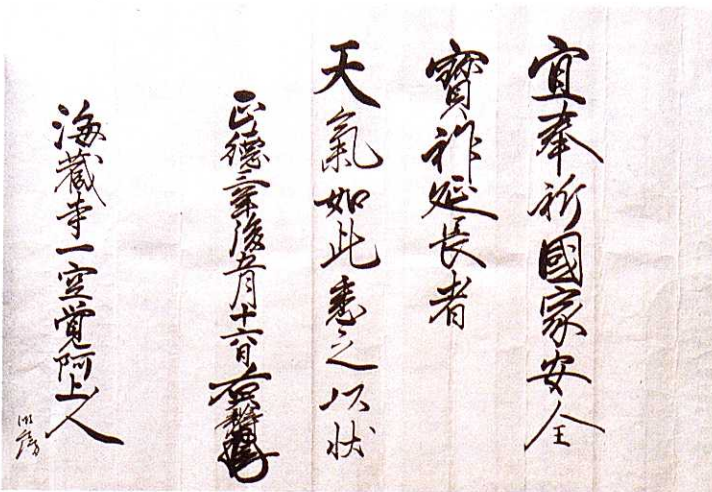 宜奉祈國家安全
寶祚延長者
天氣如此悉之以状
正徳三年後五月十六日
海蔵寺一空覚阿上人
御房